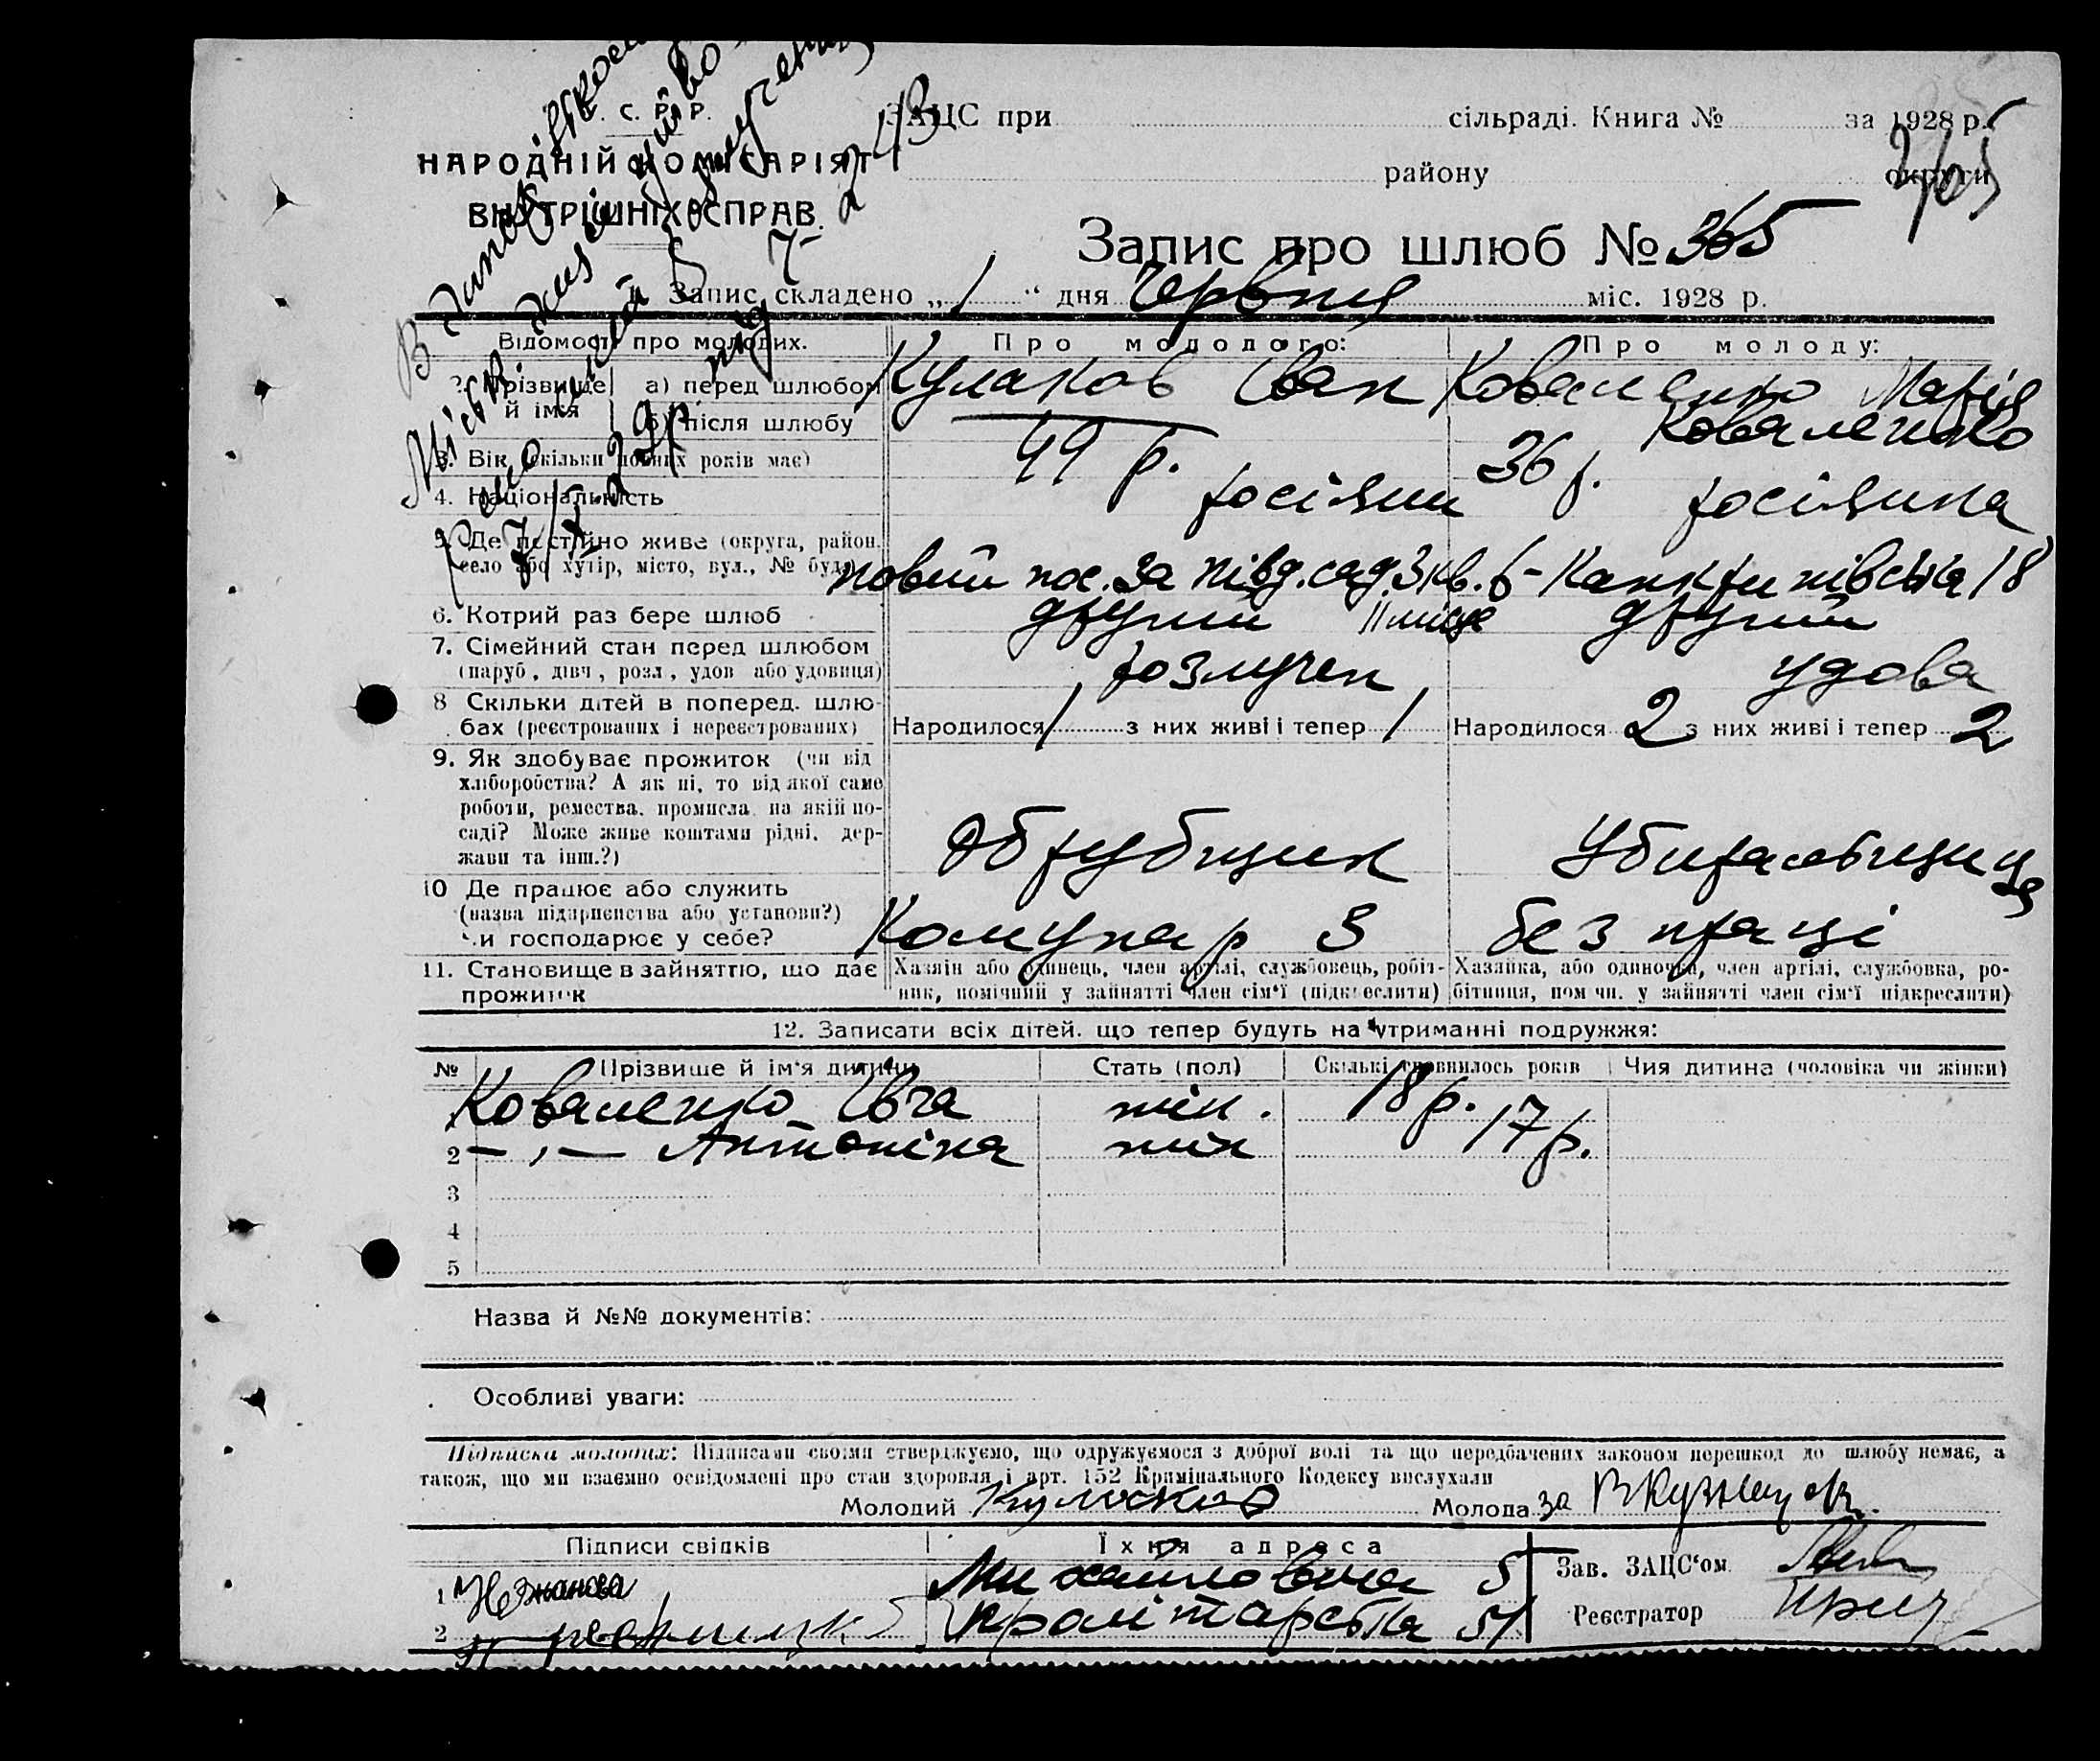 С. Р. Р.
НАРОДНІЙ КОМІСАРІЯТ
ВНУТРІШНІХ СПРАВ.
ЗАЦС при сільраді. Книга № за 1928 р.
району округи
365
Запис про шлюб № 365
1. Запис складено „ 1 “ дня Червня міс. 1928 р.
Відомості про молодих. Про молодого: Про молоду:
2. Прізвище й імя а) перед шлюбом Кулаков Іван Коваленко Марія
б) після шлюбу Коваленко
3. Вік (скільки повних років має) 49 р. 36 р.
4. Національність росіянин росіянка
5. Де постійно живе (округа, район,
село або хутір, місто, вул., № буд.) новий пос. за півд. сад. 3 кв. 6 18
6. Котрий раз бере шлюб другий другий
7. Сімейний стан перед шлюбом
(паруб., дівч., розл., удов або удовиця) розлучен удова
8 Скільки дітей в поперед. шлю-
бах (реєстрованих і нереєстрованих) Народилося 1 з них живі і тепер 1 Народилося 2 з них живі і тепер 2
9. Як здобуває прожиток (чи від
хліборобства? А як ні, то від якої саме
роботи, ремества, промисла, на якій по-
саді? Може живе коштами рідні, дер-
жави та інш.?) Обрубщик Убиральщиця
10 Де працює або служить
(назва підприємства або установи?)
чи господарює у себе? Комунар 3 без праці
11. Становище в зайняттю, що дає
прожиток
Хазяін або одинець, член артілі, службовець, робіт-
ник, помічний у зайнятті член сім'ї (підкреслити)
Хазяйка, або одиночка, член артілі, службовка, ро-
бітниця, помічн. у зайнятті член сім'ї підкреслити)
12. Записати всіх дітей, що тепер будуть на утриманні подружжя:
№ Прізвище й ім'я дитини Стать (пол) Скількі сповнилось років Чия дитина (чоловіка чи жінки)
Коваленко жін. 18 р.
2 — „ — Антоніна жін 17 р.
3
4
5
Назва й №№ документів:
Особливі уваги:
Підписка молодих: Підписами своїми стверджуємо, що одружуємося з доброї волі та що передбачених законом перешкод до шлюбу немає, а
також, що ми взаємно освідомлені про стан здоровля і арт. 152 Кримінального Кодексу вислухали
Молодий Кулаков Молода за
Підписи свідків Їхня адреса
1 Михайлівська 5
2 51
Зав. ЗАЦС'ом
Реєстратор